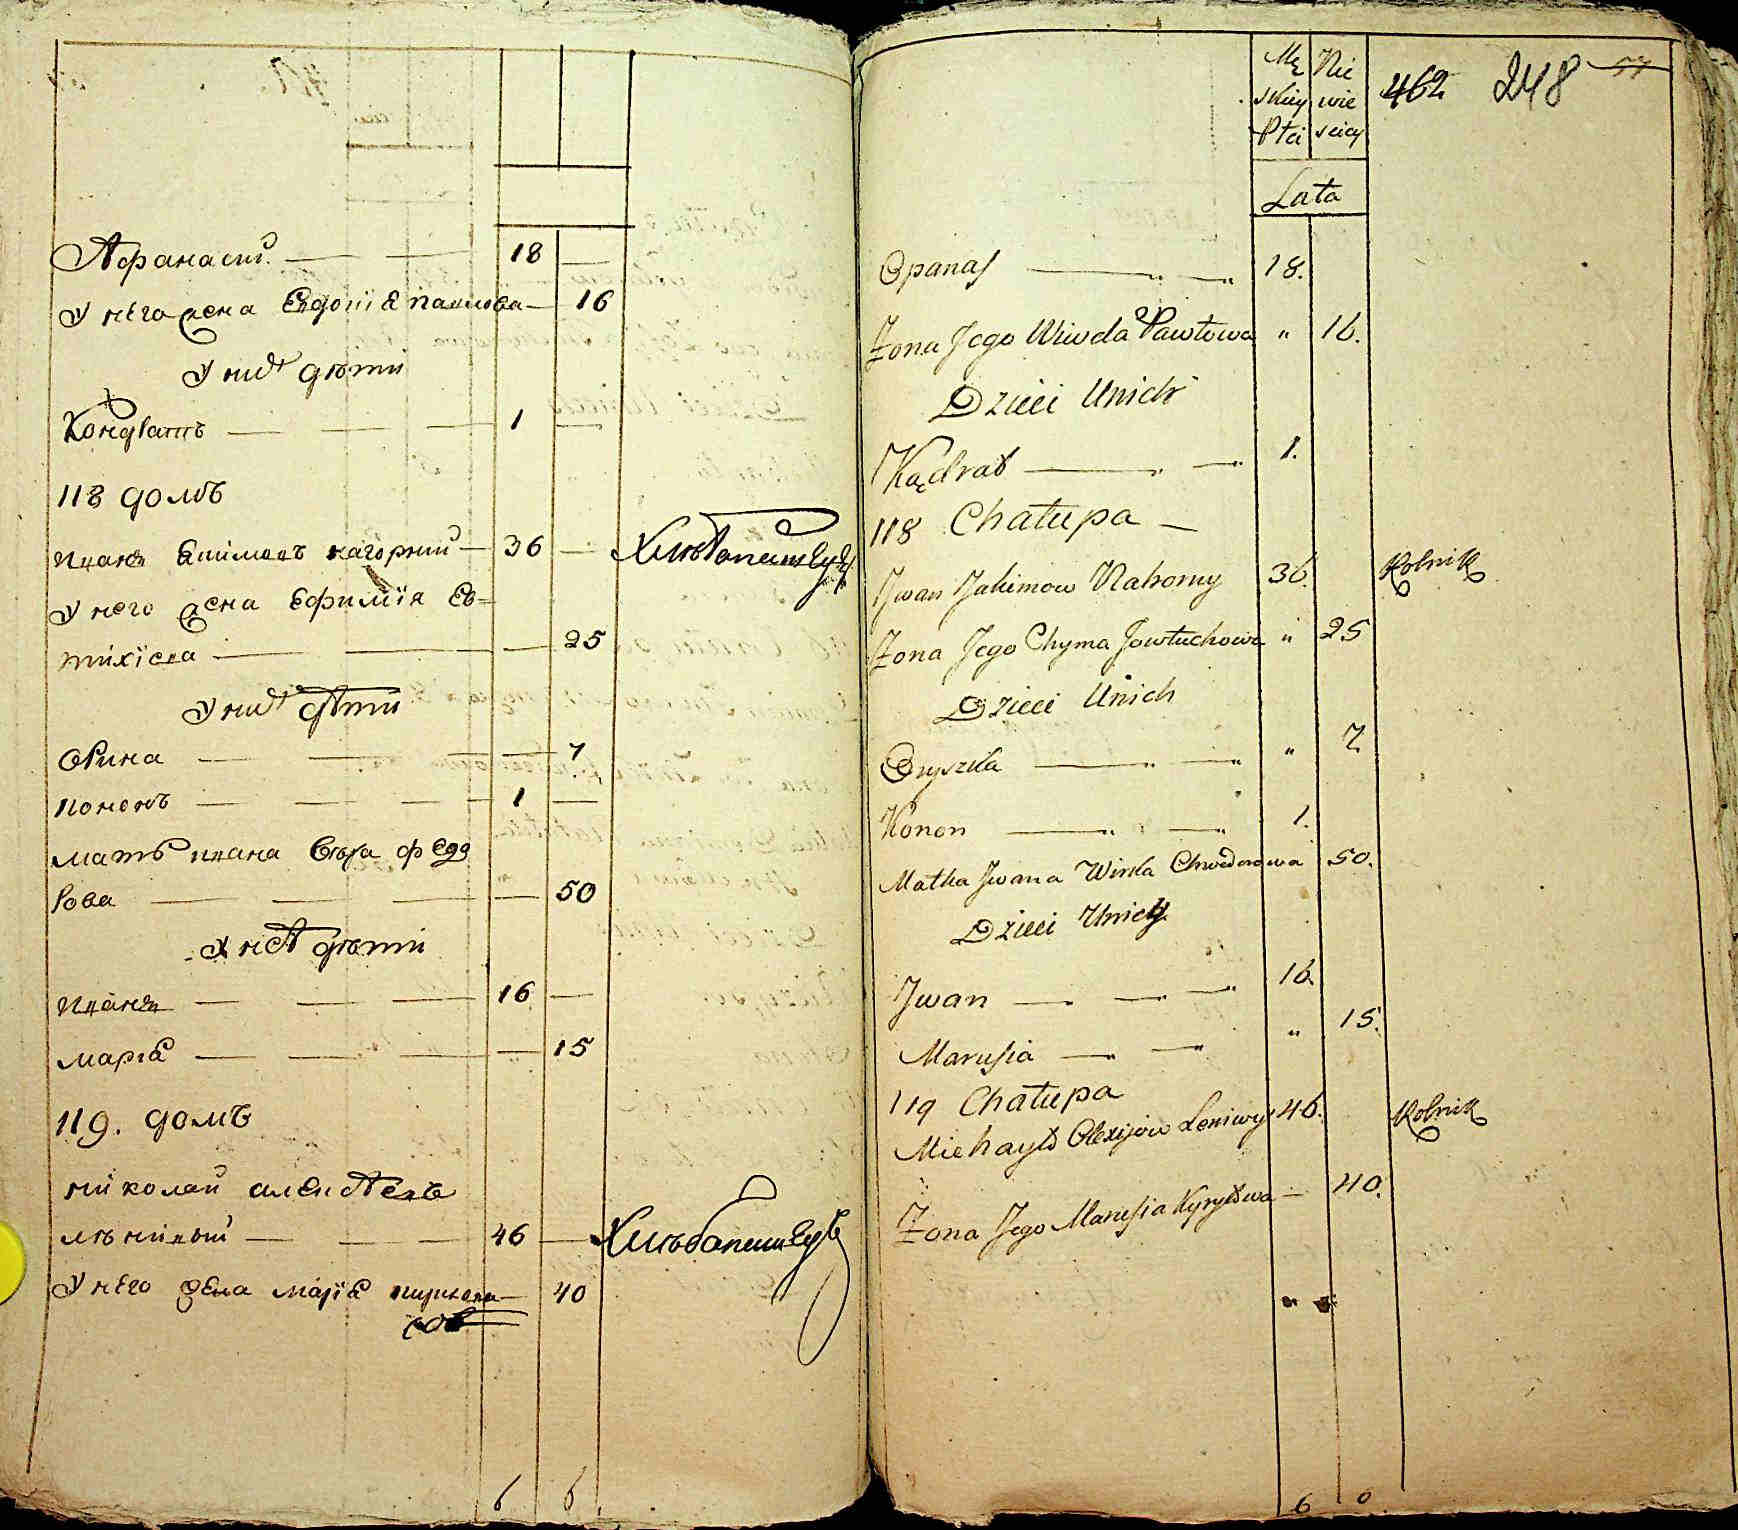 Афанасий 18
У него жена Евдокиѣ павлова 16
У нихъ дѣти
Кондратъ 1
118 домъ
Иванъ Екимовъ нагорний 36 Хлѣбопашецъ
У него жена Ефимия Ев=
тихієва 25
У нихъ дѣти
Орина 7
Кононъ 1
мать ивана вѣра федо
рова 50
У неѣ дѣти
Иванъ 16
мариѣ 15
119. домъ
николай алексѣевъ
лѣнивый 46 Хлѣбопашецъ
У него жена маріѣ кирилова 40
6 6
Mę Nie 462 248 57
skiey wie
Płci sciey
Lata
Opanas 18.
Żona Jego Wiwda Pawłowa " 16.
Dzieci Unich
Kądrat 1.
118 Chałupa
Jwan Jakimow Nahorny 36. Rolnik
Żona Jego Chyma Jowtuchowa " 25
Dzieci Unich
Oryszka " 7
Konon 1.
Matka Jwana Wirka Chwedorowa 50.
Dzieci Unich
Jwan 16.
Marusia " 15.
119 Chałupa
Michayło Olexijow Leniwy 46. Rolnik
Żona Jego Marusia Kyryłowa 40.
6 6